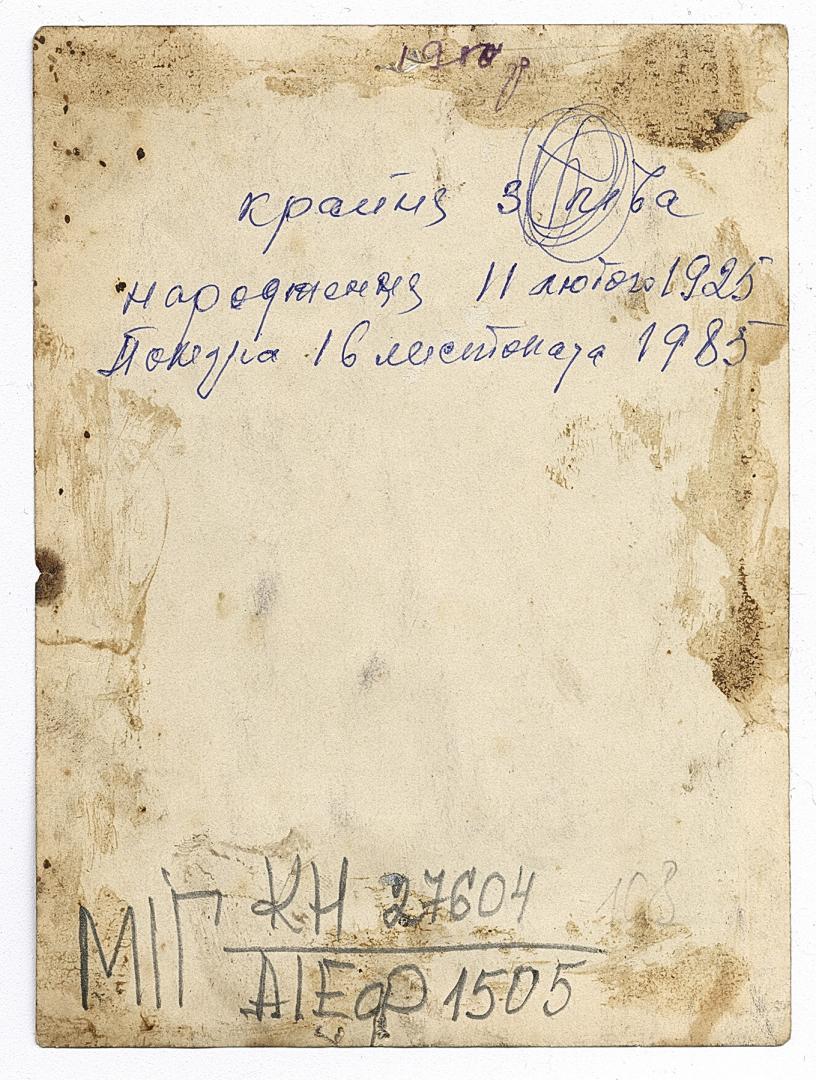 крайня з ліва
народження 11 лютого 1925
Померла 16 листопада 1985
МІГ КН 27604 103
АІЕФ 1505